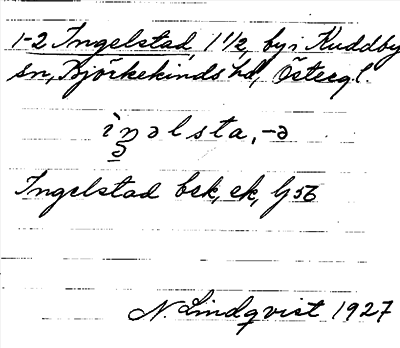 1-2 Ingelstad, 1 1/2, by i Kuddby
sn, Björkekinds hd, Östergl.
ìŋəlsta, -ə
Ingelstad bek, ek, Gj 56
N. Lindqvist 1927